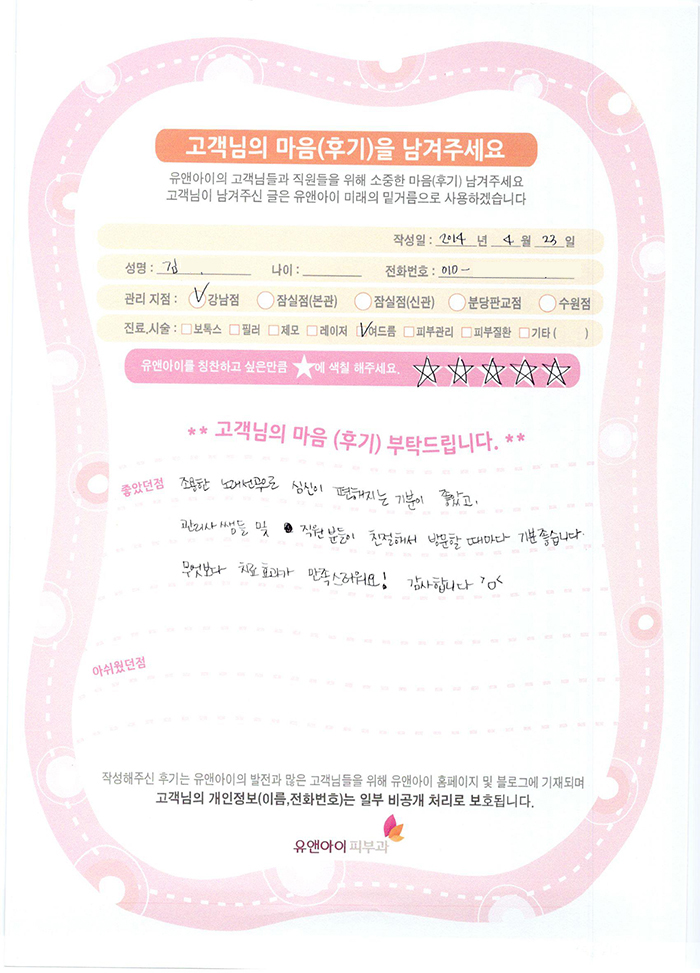 고객님의 마음(후기)을 남겨주세요
유앤아이의 고객님들과 직원들을 위해 소중한 마음(후기) 남겨주세요
고객님이 남겨주신 글은 유앤아이 미래의 밑거름으로 사용하겠습니다
작성일 : 2014 년 4 월 23 일
성명 : 김 나이 : 전화번호 : 010 -
관리 지점 : 강남점 잠실점(본관) 잠실점(신관) 분당판교점 수원점
진료,시술 : 보톡스 필러 제모 레이저 여드름 피부관리 피부질환 기타 ( )
유앤아이를 칭찬하고 싶은만큼 ★에 색칠 해주세요.
** 고객님의 마음 (후기) 부탁드립니다. **
좋았던점 조용한 노래선곡으로 심신이 편해지는 기분이 좋았고,
관리사 쌤들 및 직원분들이 친절해서 방문할 때마다 기분좋습니다.
무엇보다 치료효과가 만족스러워요! 감사합니다 >o<
아쉬웠던점
작성해주신 후기는 유앤아이의 발전과 많은 고객님들을 위해 유앤아이 홈페이지 및 블로그에 기재되며
고객님의 개인정보(이름,전화번호)는 일부 비공개 처리로 보호됩니다.
유앤아이 피부과